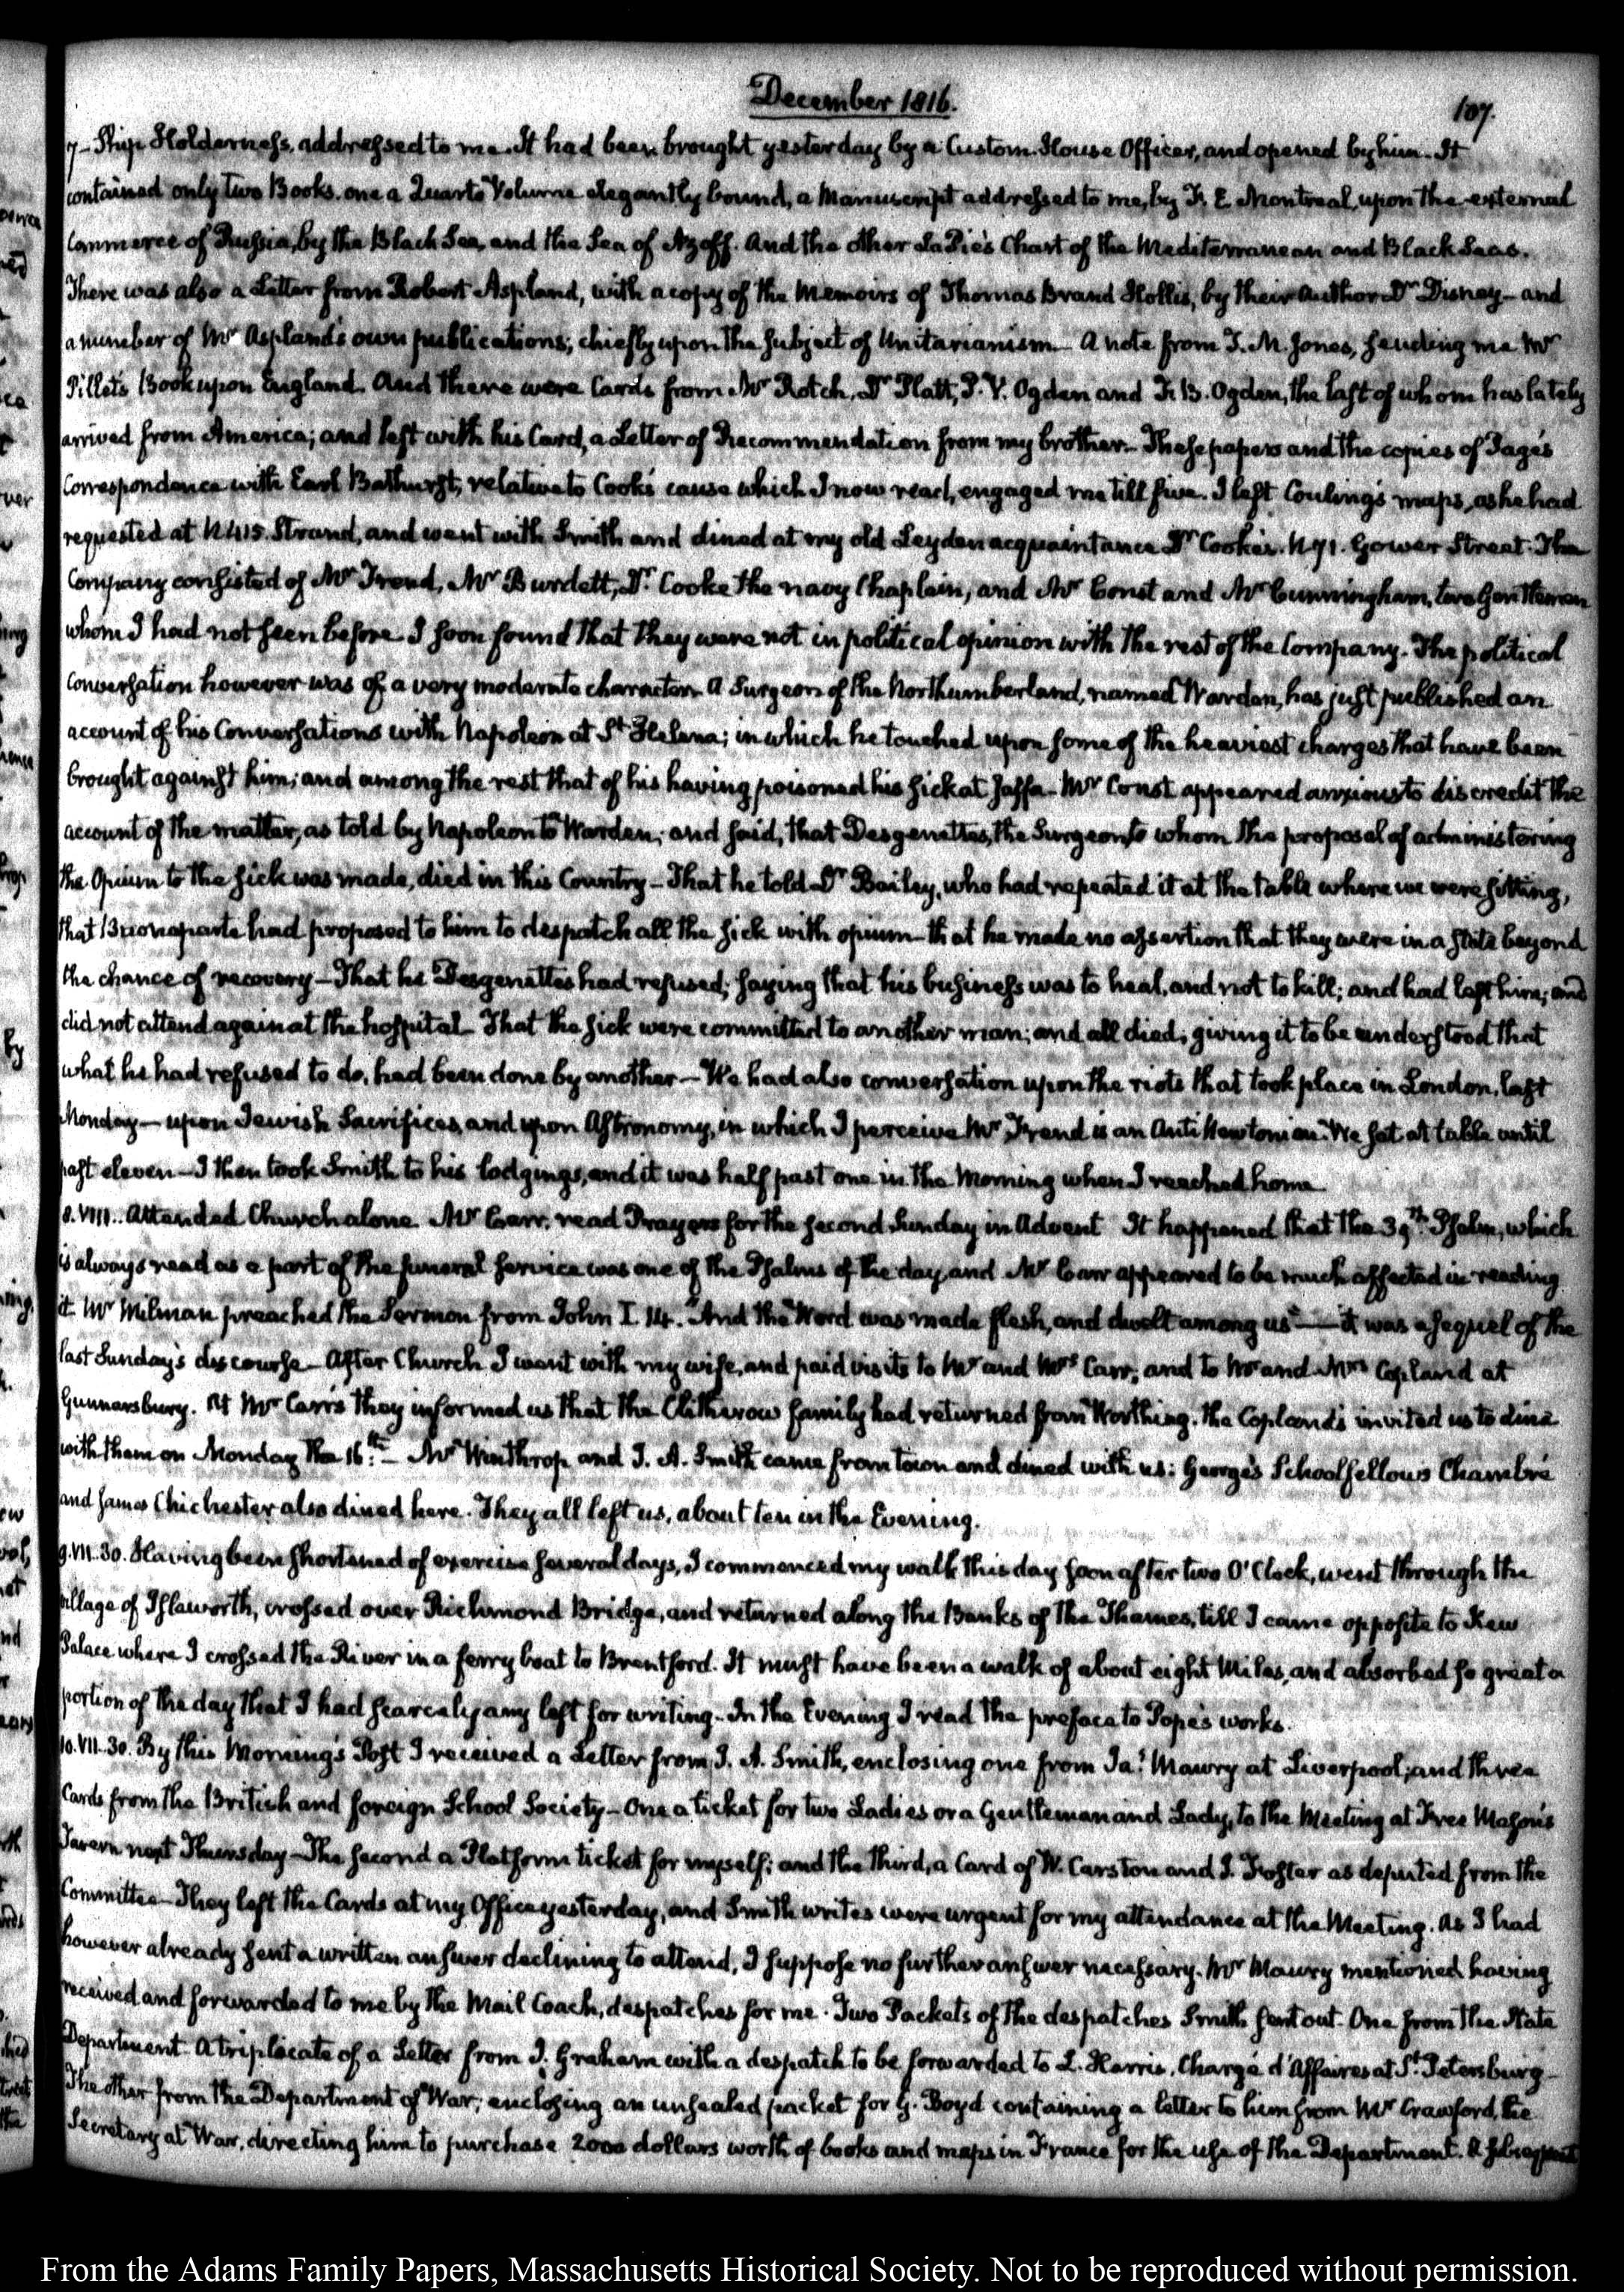 December 1816.
107.
7 - Ship Holderness, addressed to me. It had been brought yesterday by a Custom House Officer, and opened by him. It
contained only two Books. one a Quarto Volume elegantly bound, a Manuscript addressed to me, by F. E. Montreal, upon the external
Commerce of Russia, by the Black Sea, and the Sea of Azoff. And the other LaPie's Chart of the Mediterranean and Black Seas.
There was also a Letter from Robert Aspland, with a copy of the Memoirs of Thomas Brand Hollis, by their Author Dr Disney - and
a number of Mr Aspland's own publications; chiefly upon the subject of Unitarianism - A note from T. M. Jones, sending me Mr
Pillet's Book upon England. And there were Cards from Mr Rotch, Dr Platt, P. V. Ogden and F. B. Ogden, the last of whom has lately
arrived from America; and left with his Card, a Letter of Recommendation from my brother - These papers and the copies of Page's
Correspondence with Earl Bathurst, relative to Cook's cause which I now read, engaged me till five. I left Couling's maps, as he had
requested at N 415. Strand, and went with Smith and dined at my old Leyden acquaintance Dr Cooke's. N 71. Gower Street. The
Company consisted of Mr Frend, Mr Burdett, Dr. Cooke the navy Chaplain, and Mr Const and Mr Cunningham, two Gentlemen
whom I had not seen before. I soon found that they were not in political opinion with the rest of the Company. The political
Conversation however was of a very moderate character. A Surgeon of the Northumberland, named Warden, has just published an
account of his Conversations with Napoleon at St Helena; in which he touched upon some of the heaviest charges that have been
brought against him; and among the rest that of his having poisoned his sick at Jaffa - Mr Const appeared anxious to discredit the
account of the matter, as told by Napoleon to Warden; and said, that Desgenettes, the Surgeon, to whom the proposal of administering
the Opium to the sick was made, died in this Country - That he told Dr Bailey, who had repeated it at the table where we were sitting,
that Buonaparte had proposed to him to despatch all the sick with opium - that he made no assertion that they were in a state beyond
the chance of recovery - That he Desgenettes had refused; saying that his business was to heal, and not to kill; and had left him; and
did not attend again at the hospital - That the sick were committed to another man; and all died, giving it to be understood that
what he had refused to do, had been done by another - We had also conversation upon the riots that took place in London, last
Monday - upon Jewish Sacrifices, and upon Astronomy, in which I perceive Mr Frend is an Anti Newtonian. We sat at table until
past eleven - I then took Smith to his lodgings, and it was half past one in the Morning when I reached home.
8. VIII. Attended Church alone. Mr Carr, read Prayers for the second Sunday in Advent. It happened that the 39th. Psalm, which
is always read as a part of the funeral service was one of the Psalms of the day, and Mr Carr appeared to be much affected in reading
it. Mr Milman preached the Sermon from John I. 14. "And the Word was made flesh, and dwelt among us" - it was a sequel of the
last Sunday's discourse - After Church I went with my wife, and paid visits to Mr and Mrs Carr; and to Mr and Mrs Copland at
Gunnersbury. At Mr Carr's they informed us that the Clitherow family had returned from Worthing. The Copland's invited us to dine
with them on Monday the 16th. - Mr Winthrop and J. A. Smith came from town and dined with us: George's Schoolfellows Chambré
and James Chichester also dined here. They all left us, about ten in the Evening.
9. VII. 30. Having been shortened of exercise several days, I commenced my walk this day soon after two O'Clock, went through the
village of Isleworth, crossed over Richmond Bridge, and returned along the Banks of the Thames, till I came opposite to Kew
Palace where I crossed the River in a ferry boat to Brentford. It must have been a walk of about eight Miles, and absorbed so great a
portion of the day that I had scarcely any left for writing - In the Evening I read the preface to Pope's works.
10. VII. 30. By this Morning's Post I received a Letter from J. A. Smith, enclosing one from Jas. Maury at Liverpool; and three
Cards from the British and foreign School Society - One a ticket for two Ladies or a Gentleman and Lady, to the Meeting at Free Mason's
Tavern next Thursday - The second a Platform ticket for myself; and the third, a Card of W. Carston and J. Foster as deputed from the
Committee - They left the Cards at my Office yesterday, and Smith writes were urgent for my attendance at the Meeting. As I had
however already sent a written answer declining to attend, I suppose no further answer necessary. Mr Maury mentioned having
received and forwarded to me by the Mail Coach, despatches for me. Two Packets of the despatches Smith sent out. One from the State
Department. A triplicate of a Letter from J. Graham with a despatch to be forwarded to L. Harris, Chargé d'Affaires at St Petersburg -
The other from the Department of War; enclosing an unsealed packet for G. Boyd containing a letter to him from Mr Crawford, the
Secretary at War, directing him to purchase 2000 dollars worth of books and maps in France for the use of the Department. A subsequent
From the Adams Family Papers, Massachusetts Historical Society. Not to be reproduced without permission.